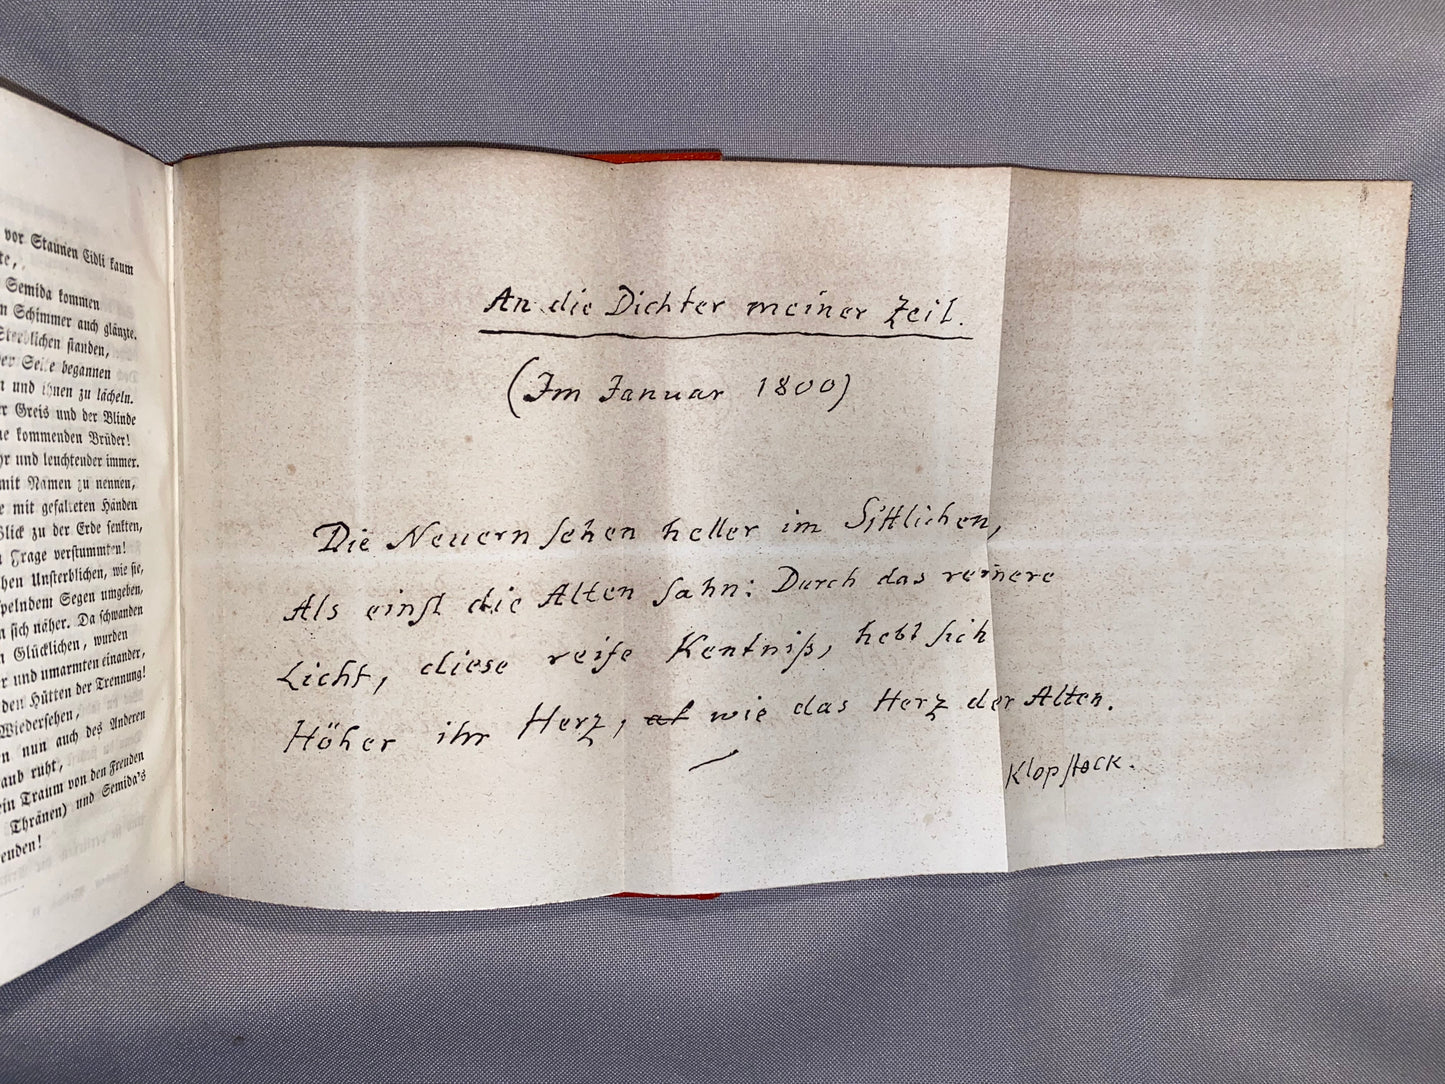 vor Staunen Cidli kaum
te,
Semida kommen
n Schimmer auch glänzte.
Sterblichen standen,
der Seite begannen
n und ihnen zu lächeln.
r Greis und der Blinde
ne kommenden Brüder!
hr und leuchtender immer.
mit Namen zu nennen,
e mit gefalteten Händen
Blick zu der Erde senkten,
Frage verstummten!
hen Unsterblichen, wie sie,
spelndem Segen umgeben,
n sich näher. Da schwanden
n Glücklichen, wurden
r und umarmten einander,
den Hütten der Trennung!
Wiedersehen,
n nun auch des Anderen
aub ruht,
ein Traum von den Freuden
Thränen) und Semida's
euden!
An die Dichter meiner Zeit.
(Im Januar 1800)
Die Neuern sehen heller im Sittlichen,
Als einst die Alten sahn: Durch das reinere
Licht, diese reife Kentniß, hebt sich
Höher ihr Herz, wie das Herz der Alten.
Klopstock.